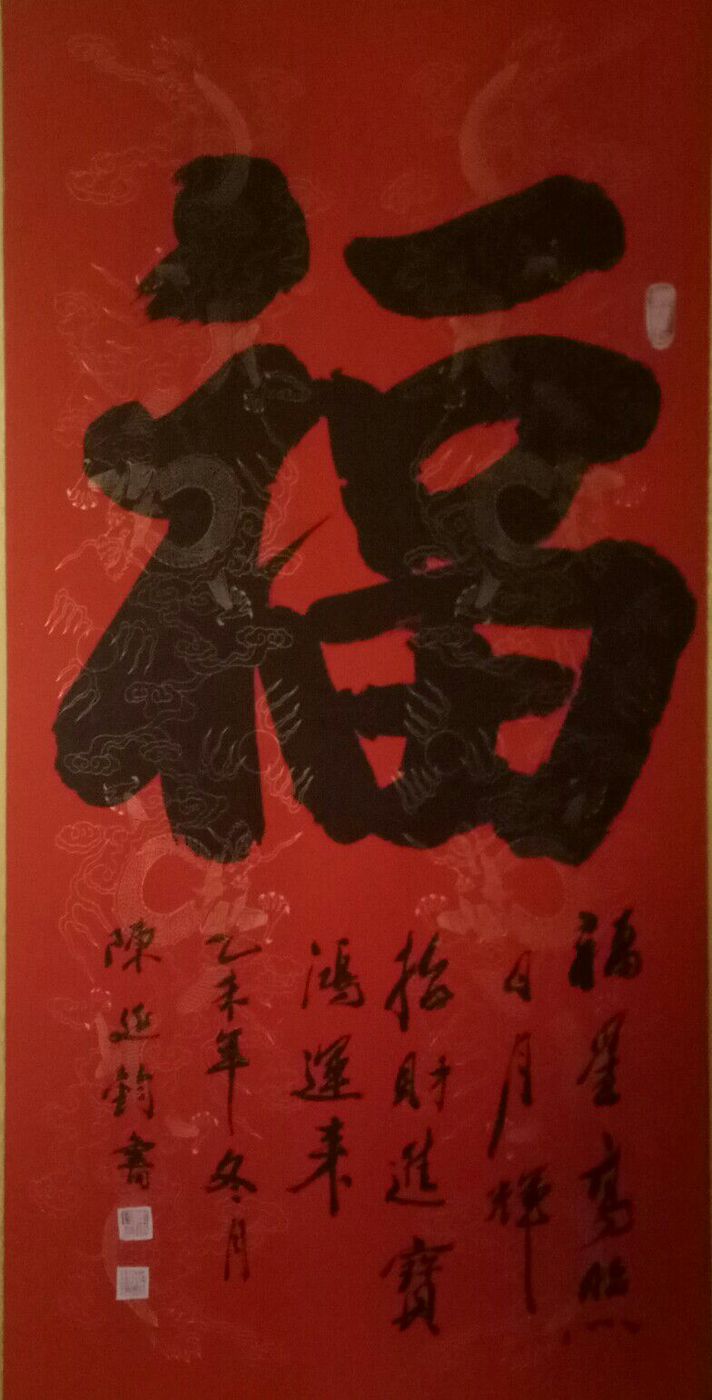 福
福星高照
日月輝
招財進寶
鴻運来
乙未年冬月
陳延鈞書